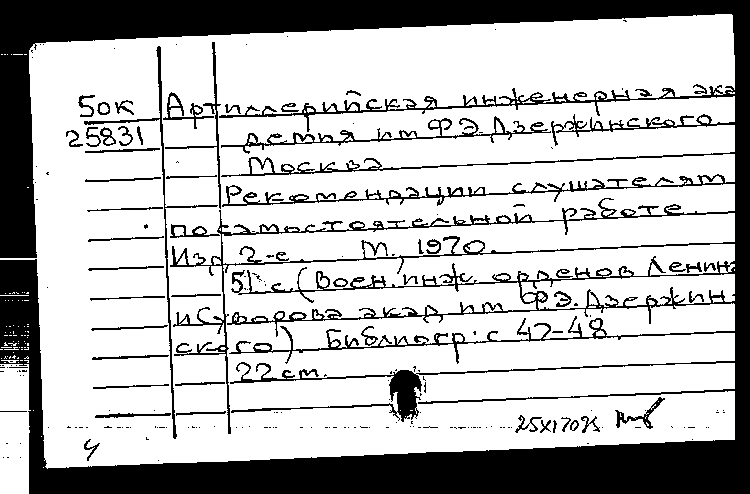 5ок Артиллерийская инженерная ака
25831 демия им Ф.Э. Дзержинского.
Москва.
Рекомендации слушателям
по самостоятельной работе.
Изд 2-е. М., 1970.
51 с. (Воен. инж. орденов Ленина
и Суворова акад им Ф.Э. Дзержин-
ского). Библиогр: с 47-48.
22 cm.
4